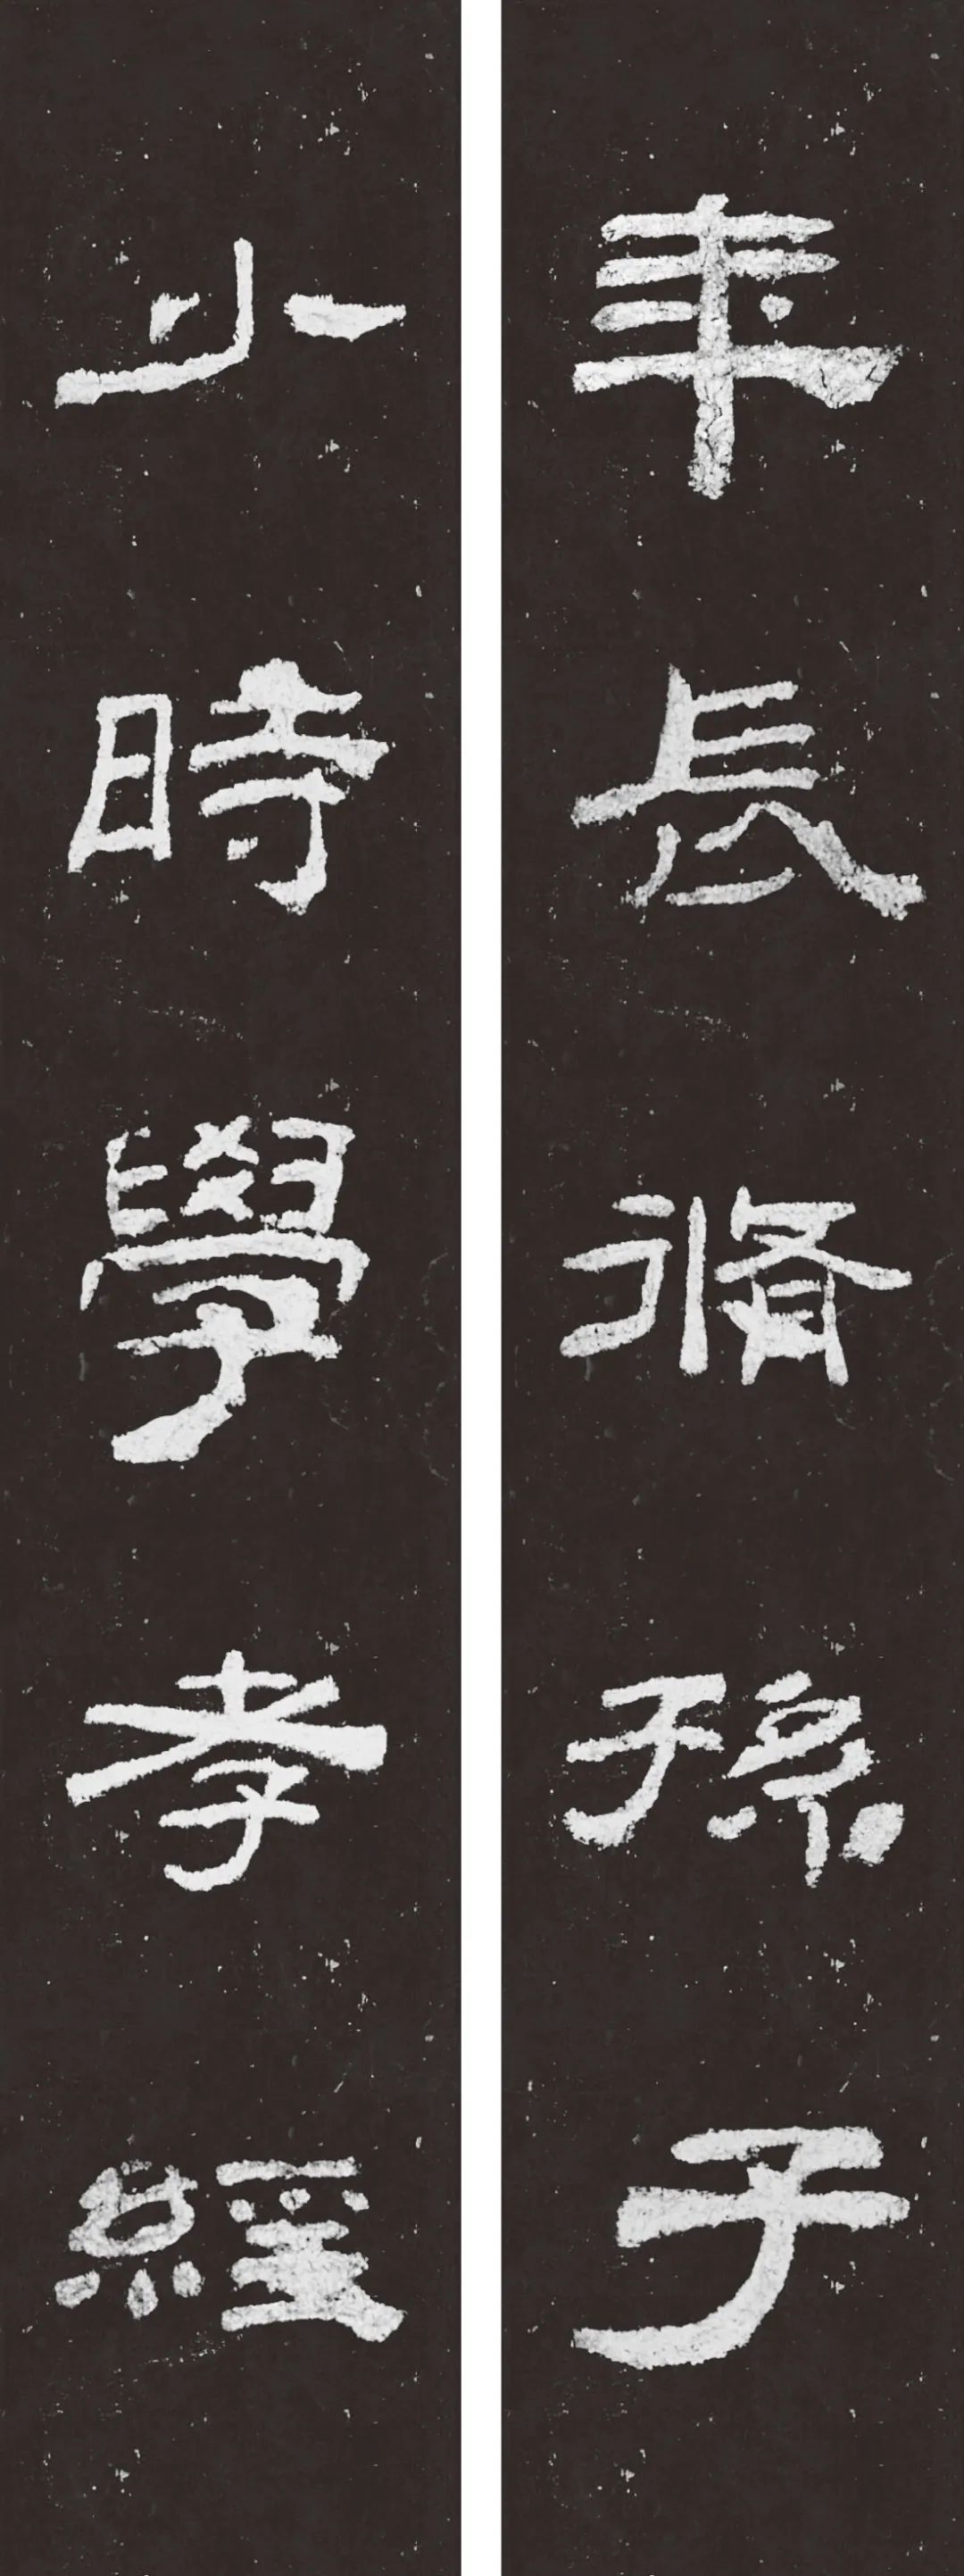 年長脩孫子
少時學孝經